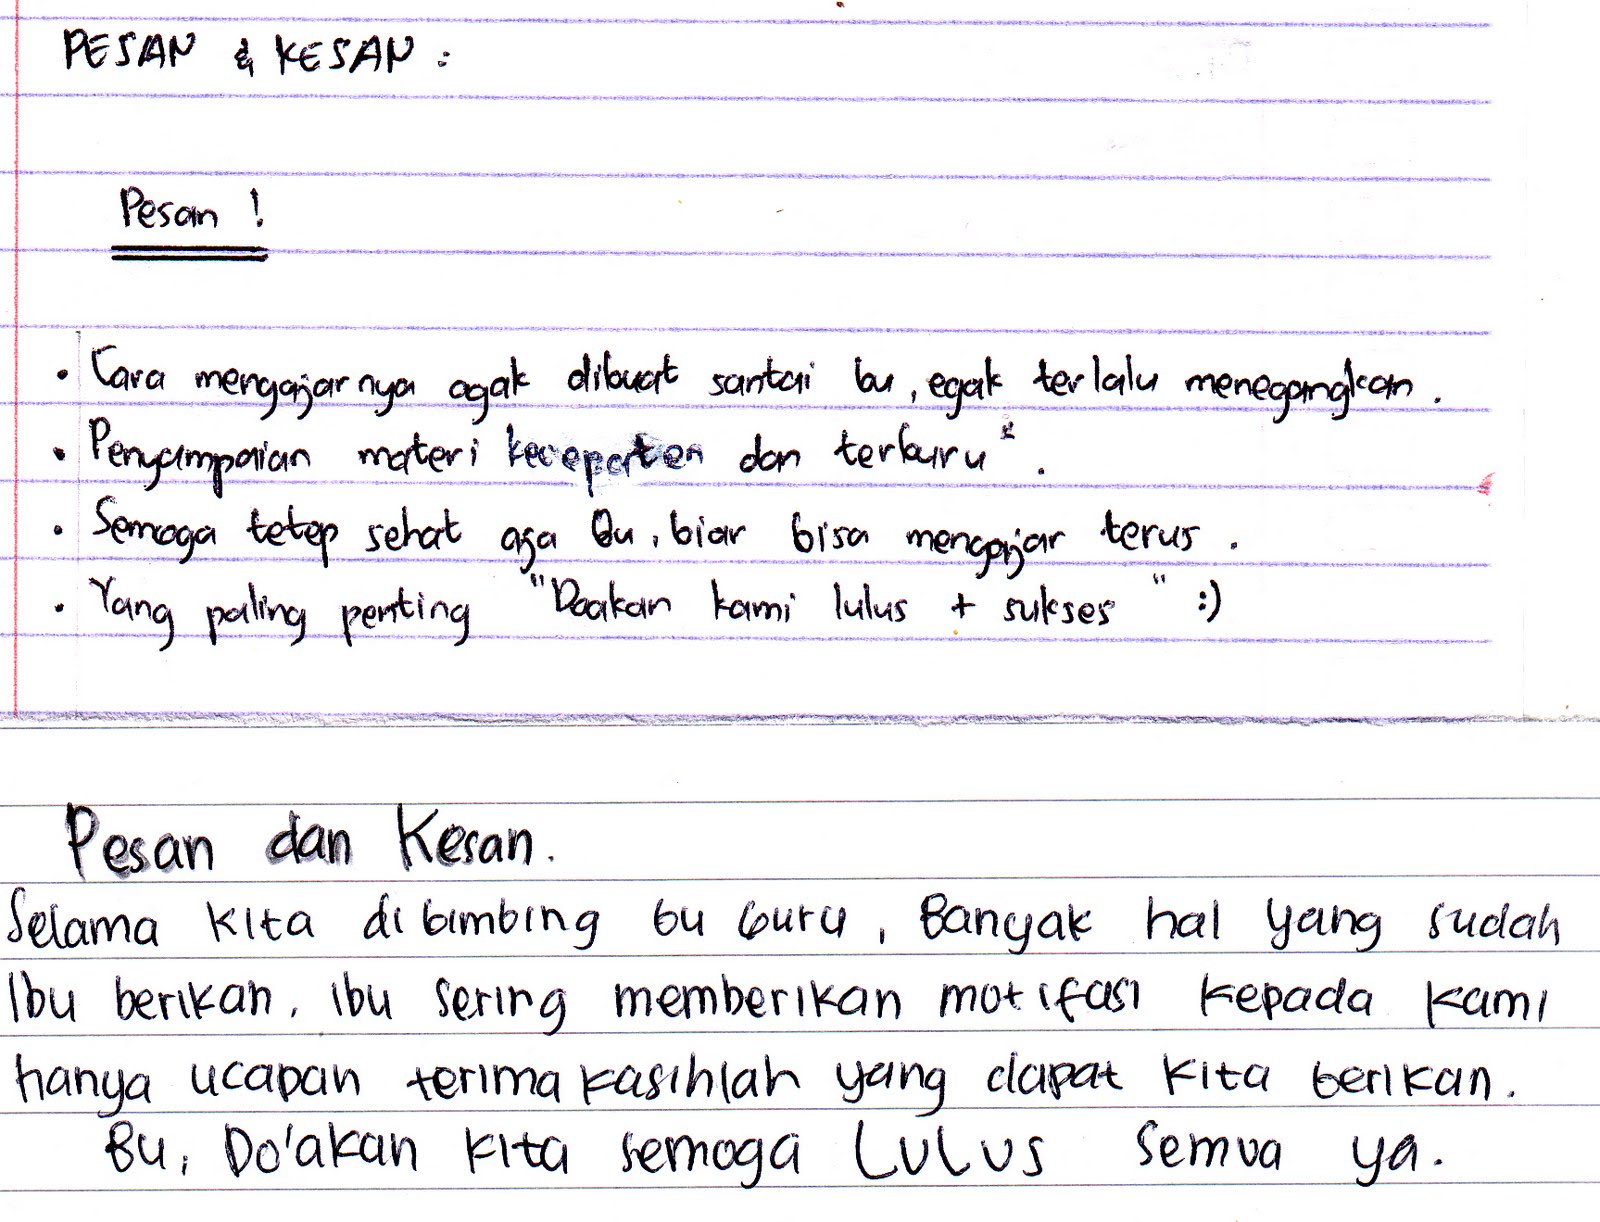 PESAN & KESAN :
Pesan !
• Cara mengajarnya agak dibuat santai bu, egak terlalu menegangkan.
• Penyampaian materi keceparten dan terburu ².
• Semoga tetep sehat aja Bu, biar bisa mengajar terus.
• Yang paling penting "Doakan kami lulus + sukses" :)
Pesan dan Kesan.
Selama kita dibimbing bu Guru, Banyak hal yang sudah
Ibu berikan. ibu sering memberikan motifasi kepada kami
hanya ucapan terima kasihlah yang dapat kita berikan.
Bu, Do'akan kita semoga LULUS semua ya.